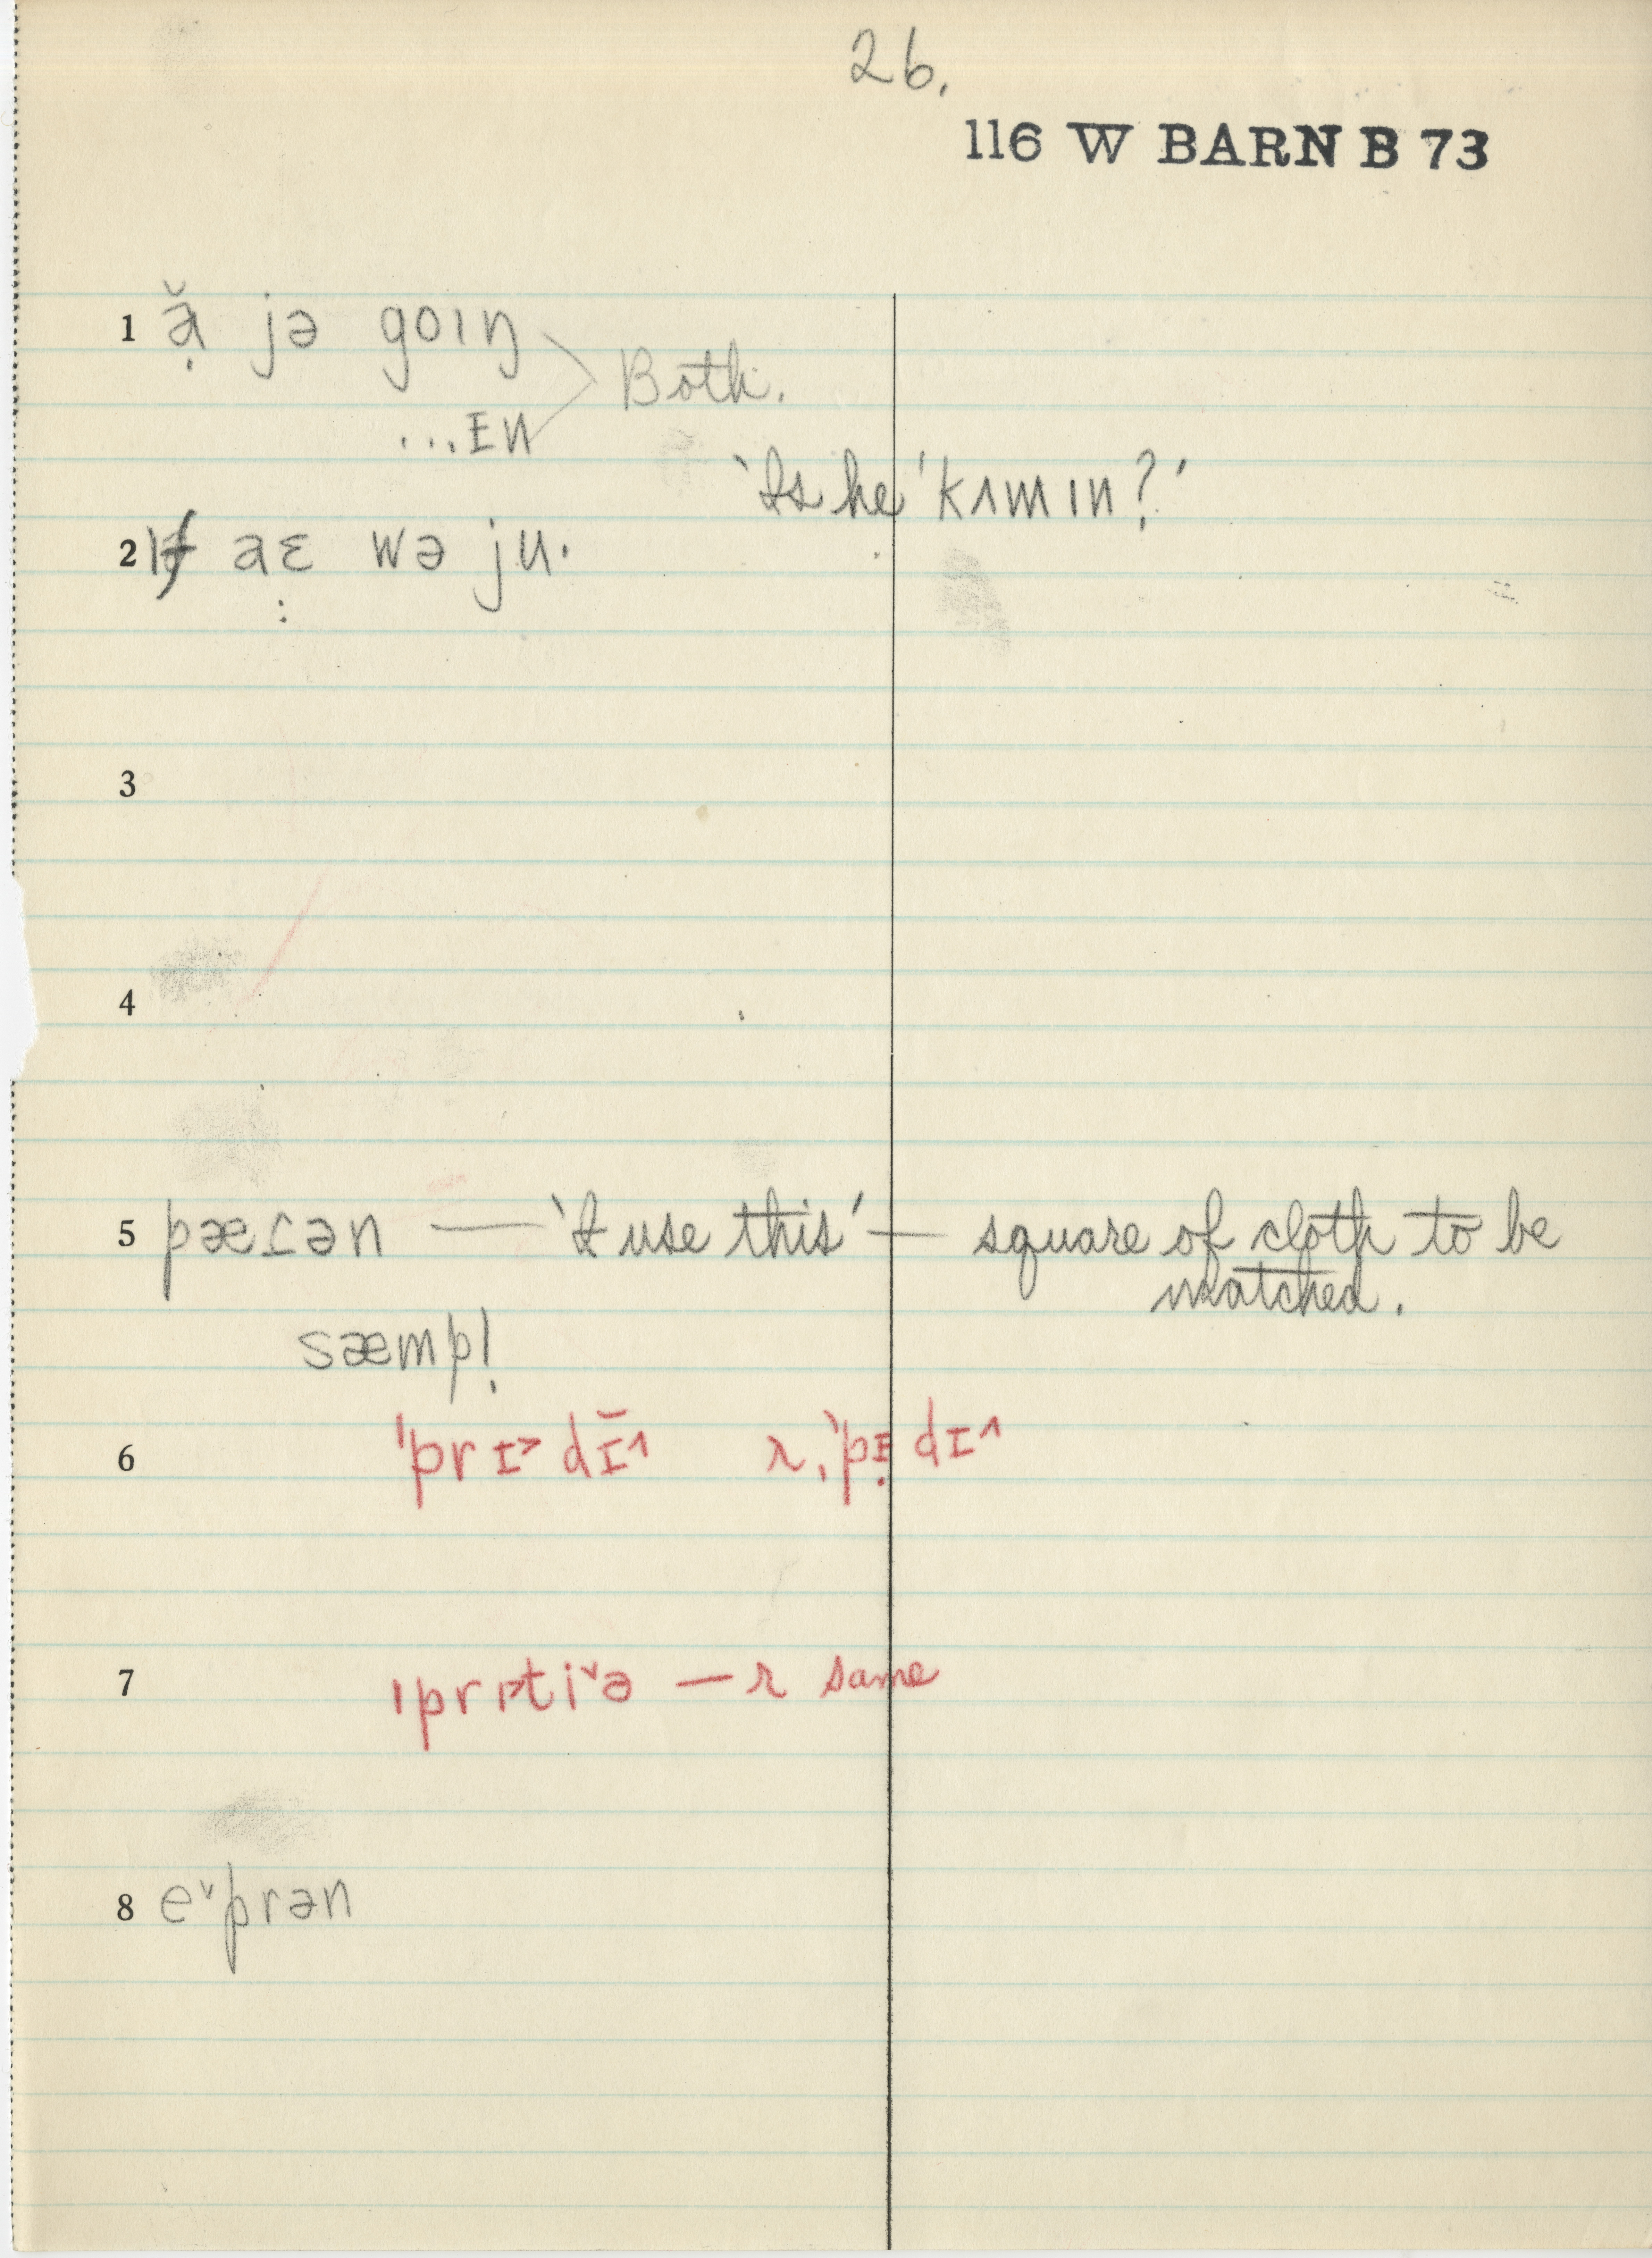 26.
116 W BARN B 73
1 ə̣̆ jə goɪŋ
Both.
...ɪn
'Is he 'kʌmɪn?'
2 ɪf aɛ wə ju.
3
4
5 pæɾən — 'I use this' — square of cloth to be
matched.
sæmpḷ
6 'prɪ˃dɪ̄^ r. 'pɪ̣dɪ^
7 'prɪ˃tiˇə — r same
8 eˇprən